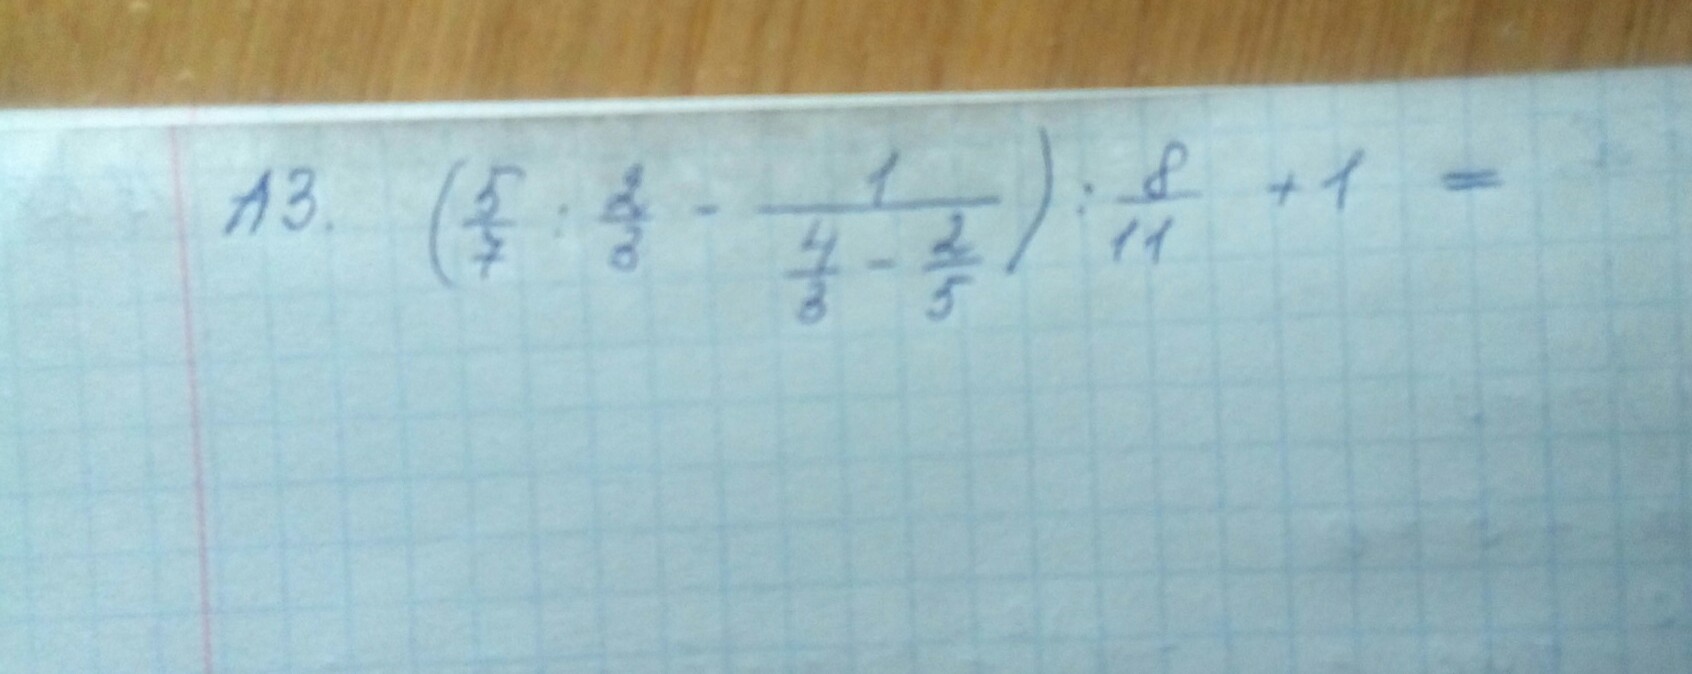 A3. (5/7 : 2/3 - 1/(4/3 - 2/5)) : 8/11 + 1 =